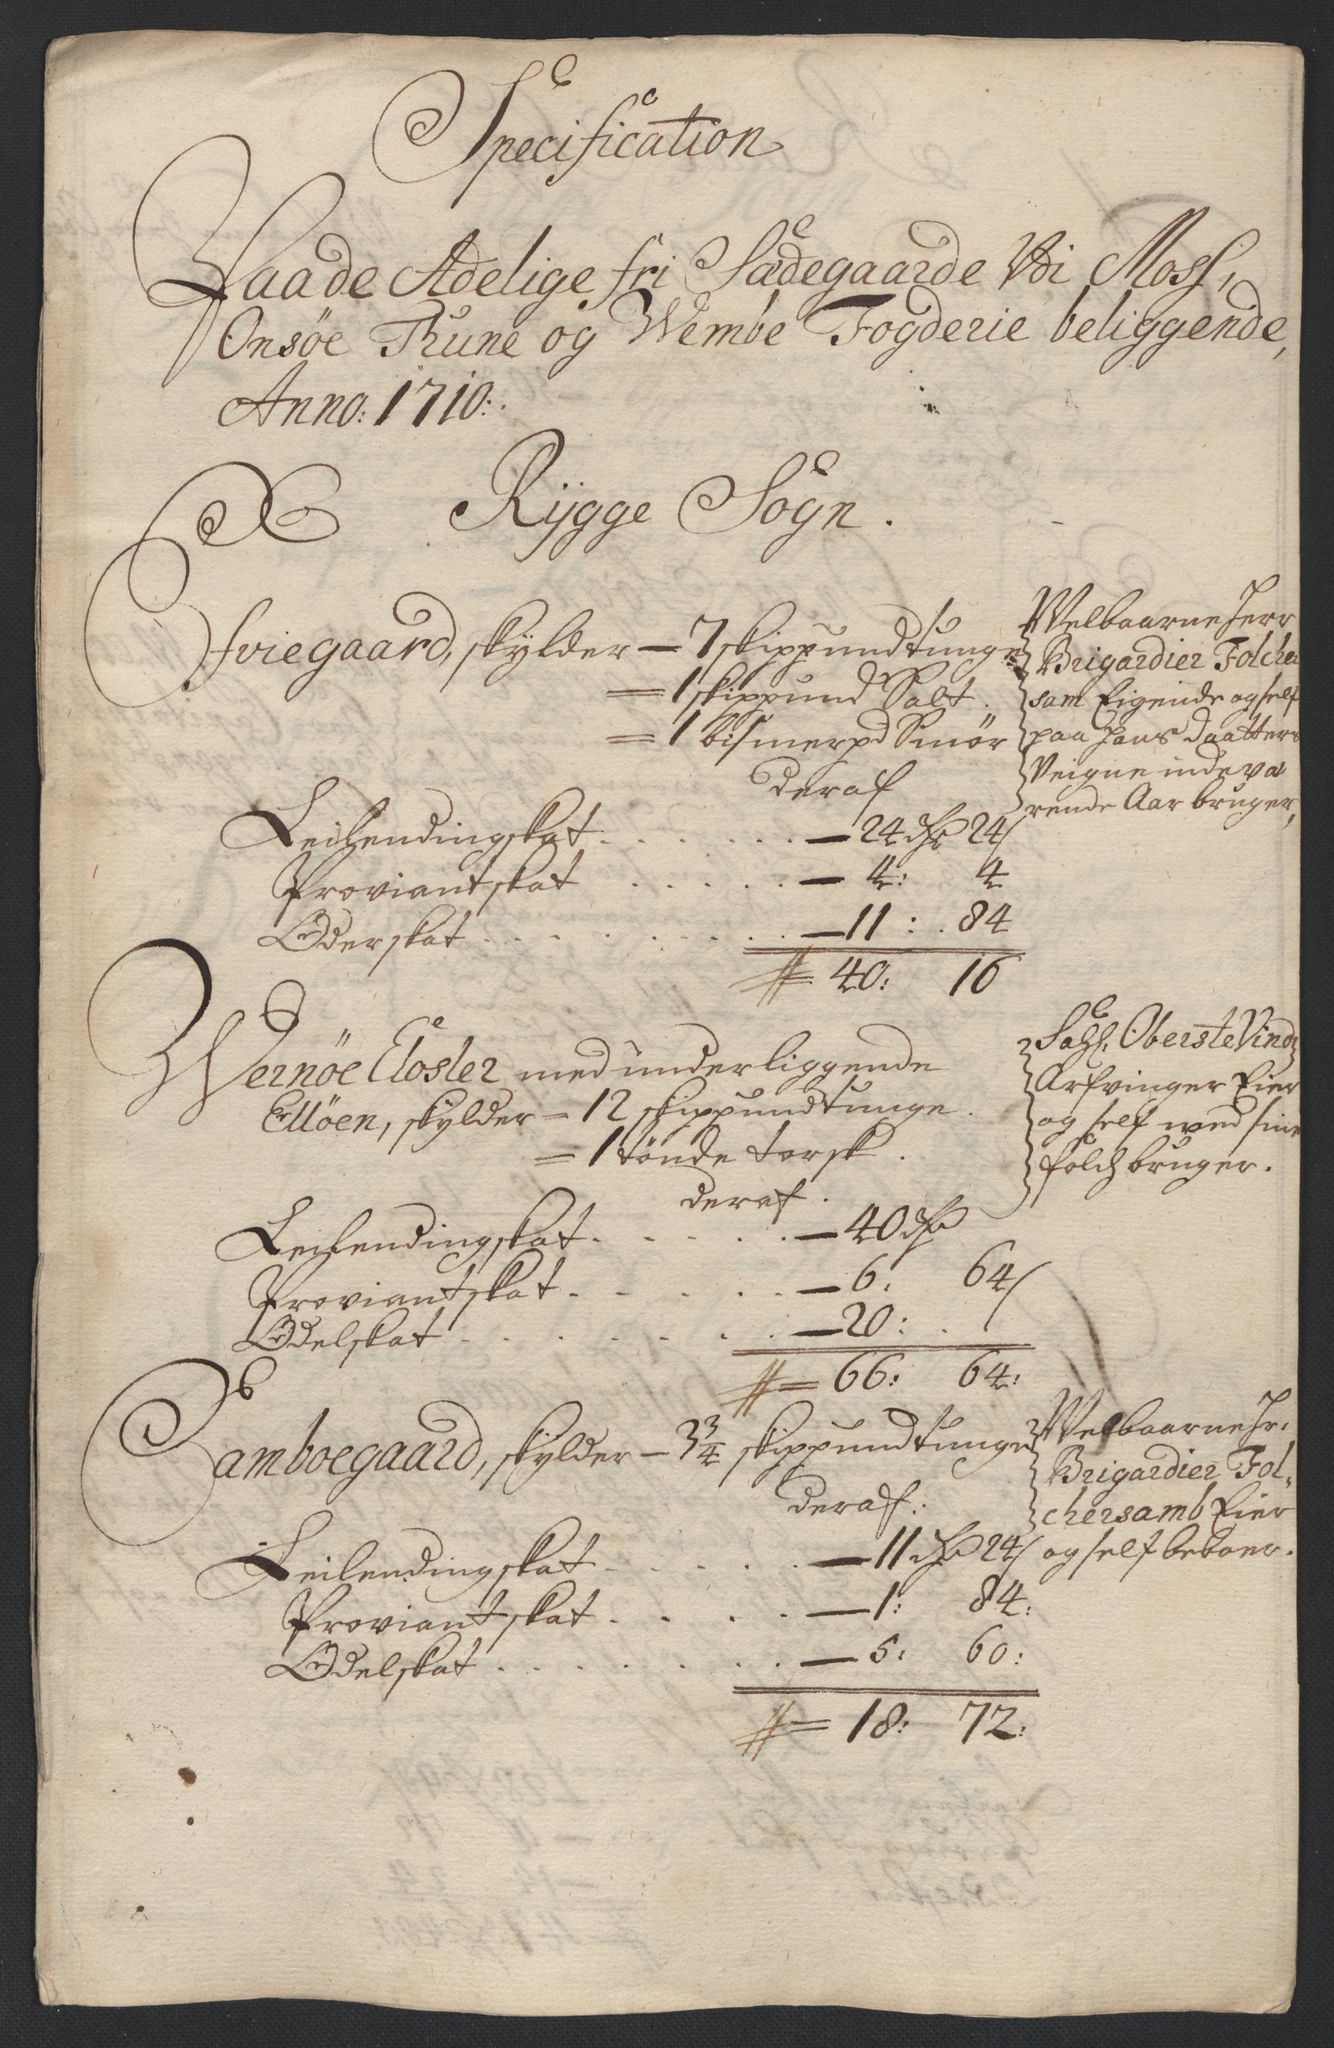 Specification
Paa de Adelige fri Sædegaarde Udi Moss,
Onsøe Thune og Wembe Fogderie beliggende,
Anno: 1710:
Rÿgge Sogn.
Efviegaard, skÿlder — 7 skippund tunge
= 1 skippund Salt.
= 1 bismerpd Smør
deraf
Welbaarne Herr
Brigardier Folcher
sam Eigende og self
paa hans daatters
Veigne indeva
rende Aar bruger,
Leilendingskat — 24 dlr 24 s
Proviantskat — 4: 4
Oderskat — 11: 84
= 40: 16
Wernøe Closter med underliggende
Elløen, skÿlder = 12 skippund tunge.
= 1 tønde torsk.
deraf.
Sahl. Oberste Vind
Arfvinger Eier
og self med sine
folch bruger.
Leilendingskat — 40 dlr
Proviantskat — 6: 64 s
Odelskat — 20:
= 66: 64:
Camboegaard, skÿlder — 3 3/4 skippund tunge
deraf:
Welbaarne Hr.
Brigardier Fol-
chersamb Eier
og self beboer.
Leilendingskat — 11 dlr 24 s
Proviantskat — 1: 84:
Odelskat — 5: 60:
= 18: 72: